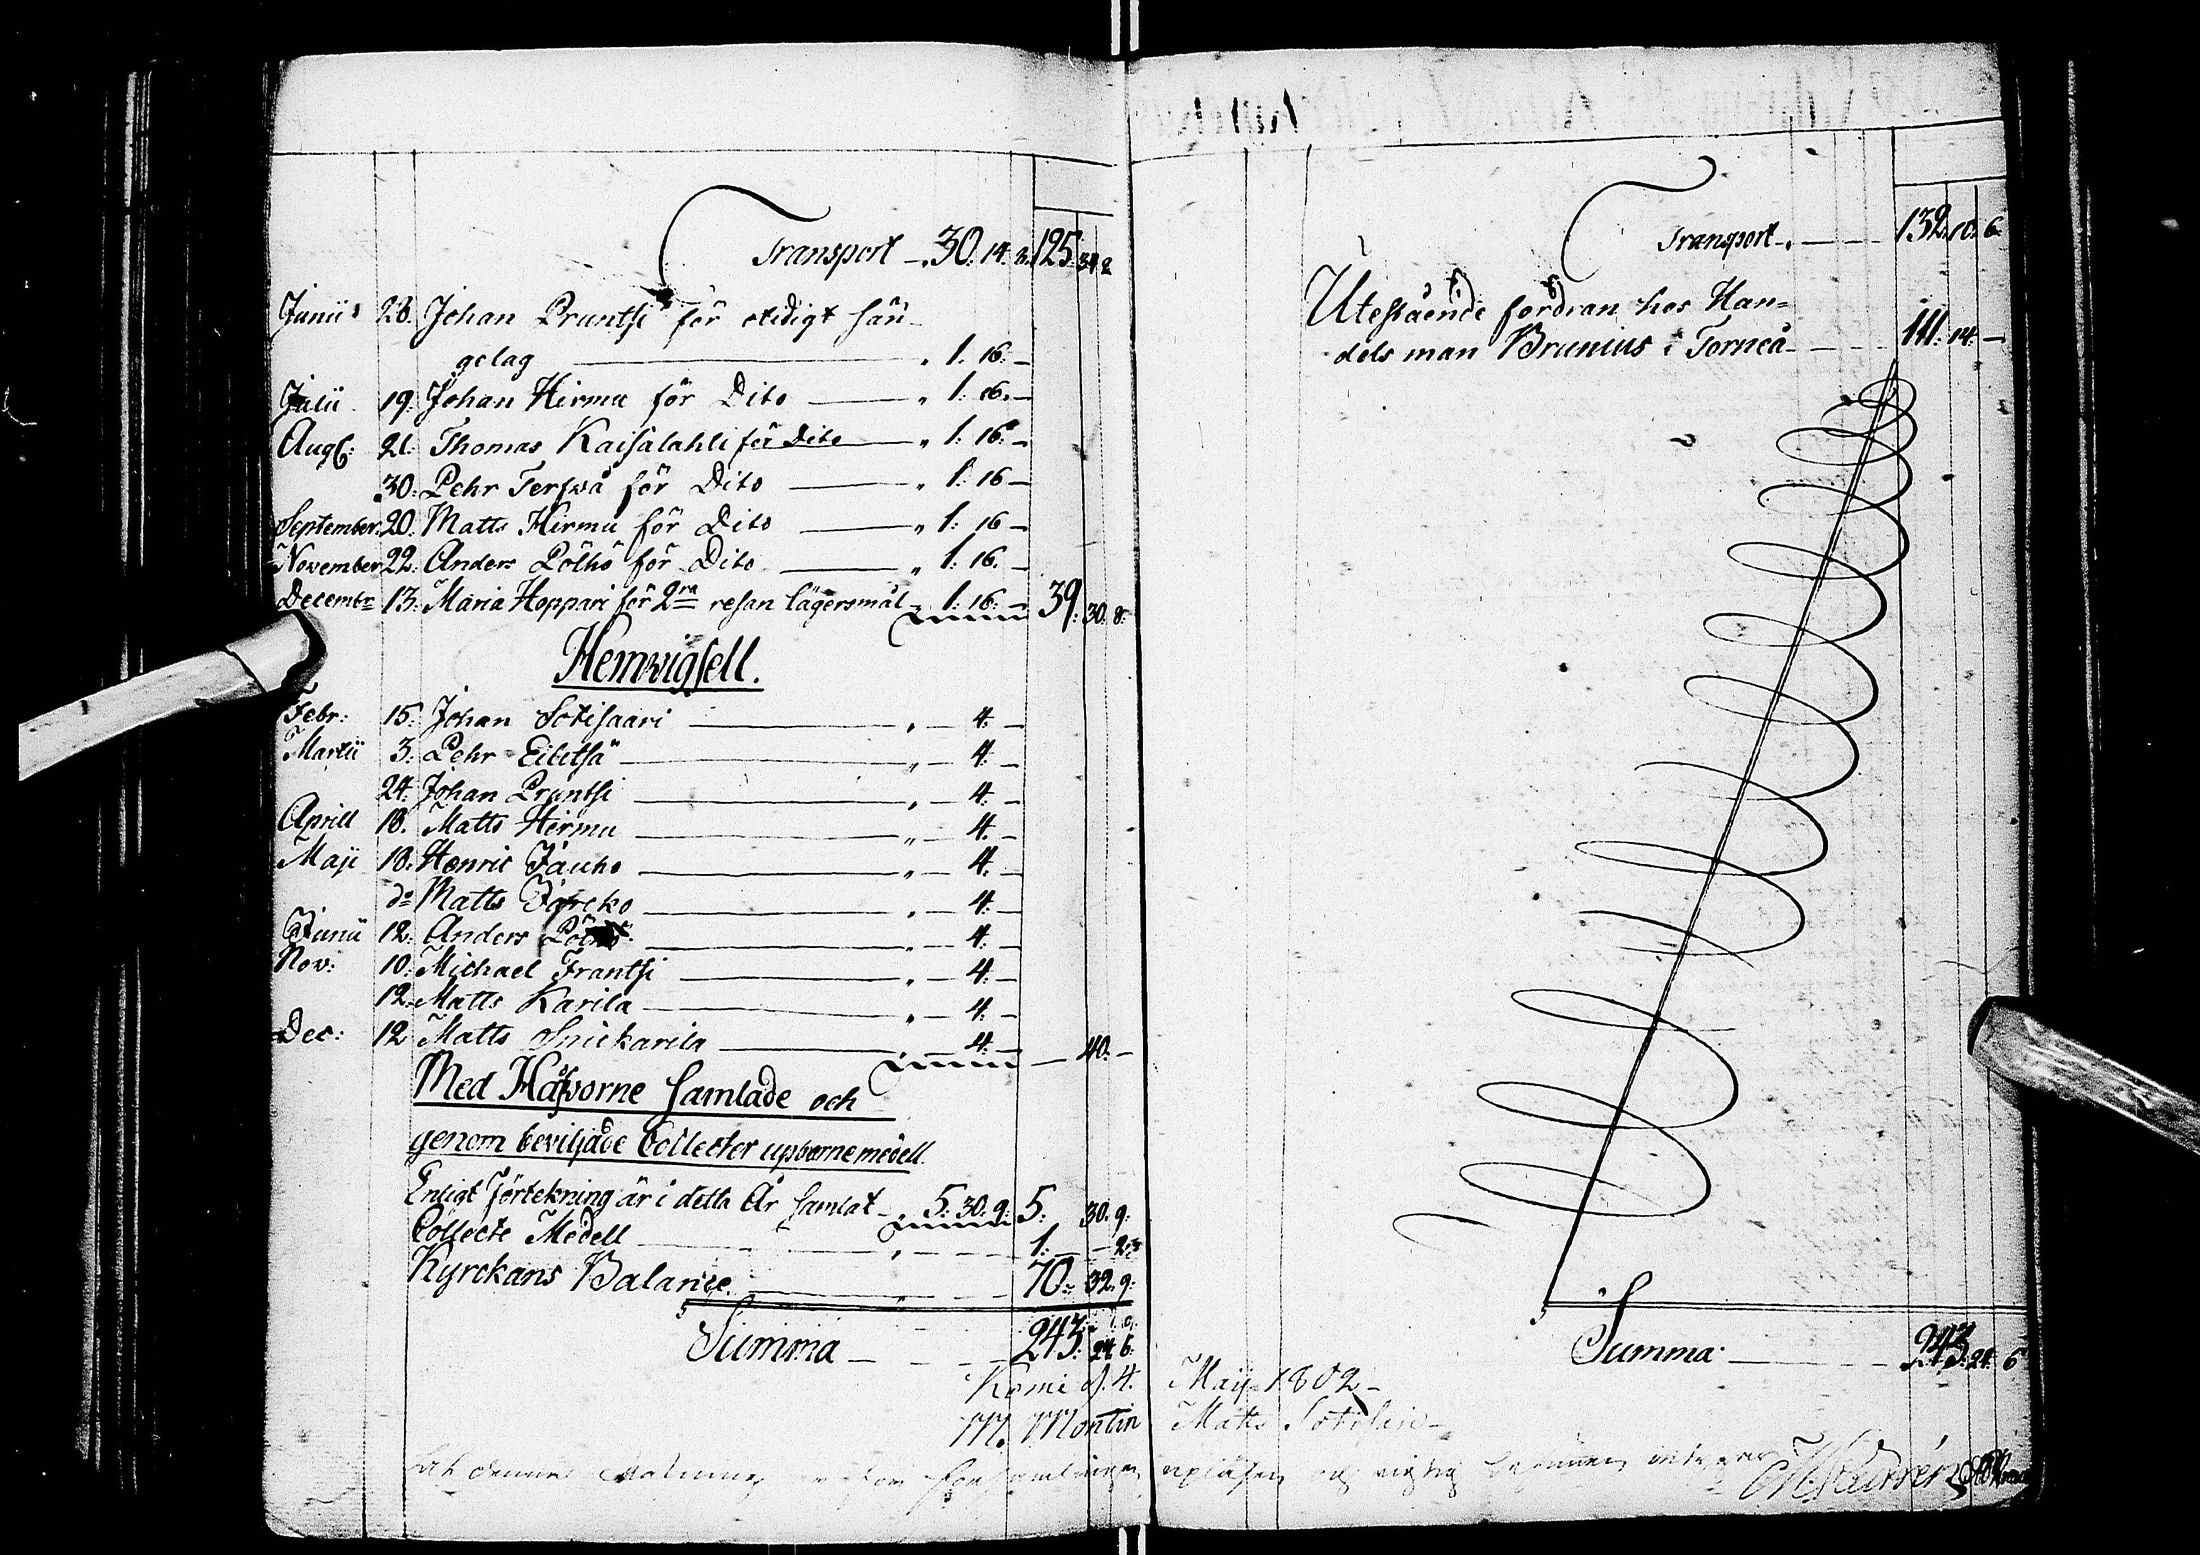 Transport — 30. 14. 8. 125. 34. 2
Junii 28. Johan Pruntsi för otidigt sän-
gelag — " 1: 16: —
Julii 19. Johan Hirmu för Dito — " 1: 16. —
Aug: 21. Thomas Kaisalahti för Dito — " 1: 16: —
30. Pehr Terfwa för Dito — " 1: 16 —
September 20. Matts Hirmu för Dito — " 1: 16 —
November 22. Anders Pölhö för Dito — " 1: 16. —
Decembr 13. Maria Hoppari för 2ra resan lägersmål — 1: 16: — 39. 30. 8.
Hemvigsell.
Febr: 15. Johan Sotisaari — " — 4. —
Martii 3. Pehr Eibetsä — " — 4. —
24. Johan Pruntsi — " — 4. —
Aprill 18. Matts Hirmu — " — 4. —
Maji 18. Henric Jauho — " — 4. —
do Matts — " — 4. —
Junii 12. Anders — " — 4. —
Nov: 10. Michael Frantsi — " — 4. —
12. Matts Karila — " — 4. —
Dec: 12 Matts Snickarila — " — 4. — — 40. —
Med Håfvorne samlade och
genom beviljade Collecter upborne medell.
Enligt Förtekning är i detta År samlat — 5. 30. 9. 5. 30. 9.
Collecte Medell — " — 1. —
Kyrckans Balance — " — 70. 32. 9.
Summa — 243. 24. 6.
Transport. — 132. 10. 6.
Utestående fordran hos Han-
dels man Brunius i Torneå — 111. 14. —
Summa. — 243. 24. 6
Kemi d. 4. Maji 1802 —
M. Montin Matts